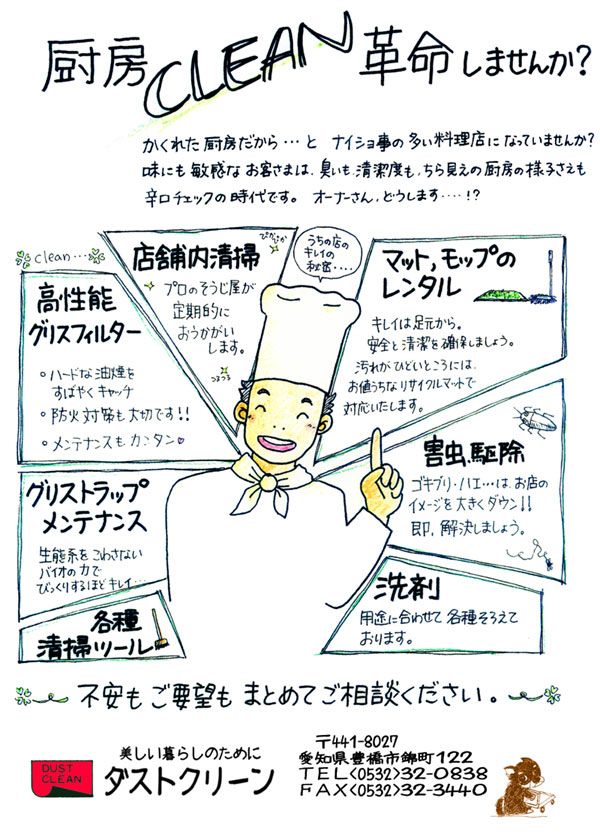 厨房CLEAN革命しませんか?
かくれた厨房だから…と ナイショ事の多い料理店になっていませんか?
味にも敏感なお客さまは、臭いも、清潔度も、ちら見えの厨房の様子さえも
辛口チェックの時代です。 オーナーさん、どうします‥‥!?
clean…
高性能
グリスフィルター
・ハードな油煙を
すばやくキャッチ
・防火対策も大切です!!
・メンテナンスもカンタン♥
店舗内清掃
ぴかぴか
プロのそうじ屋が
定期的に
おうかがい
します。
つるつる
うちの店の
キレイの
秘密‥‥
マット,モップの
レンタル
キレイは足元から。
安全と清潔を確保しましょう。
汚れがひどいところには、
お値うちなリサイクルマットで
対応いたします。
害虫駆除
ゴキブリ・ハエ…は、お店の
イメージを大きくダウン!!
即、解決しましょう。
グリストラップ
メンテナンス
生態系をこわさない
バイオの力で
びっくりするほどキレイ…
各種
清掃ツール
洗剤
用途に合わせて各種そろえて
おります。
不安もご要望もまとめてご相談ください。
DUST
CLEAN
美しい暮らしのために
ダストクリーン
〒441-8027
愛知県豊橋市錦町122
TEL<0532>32-0838
FAX<0532>32-3440